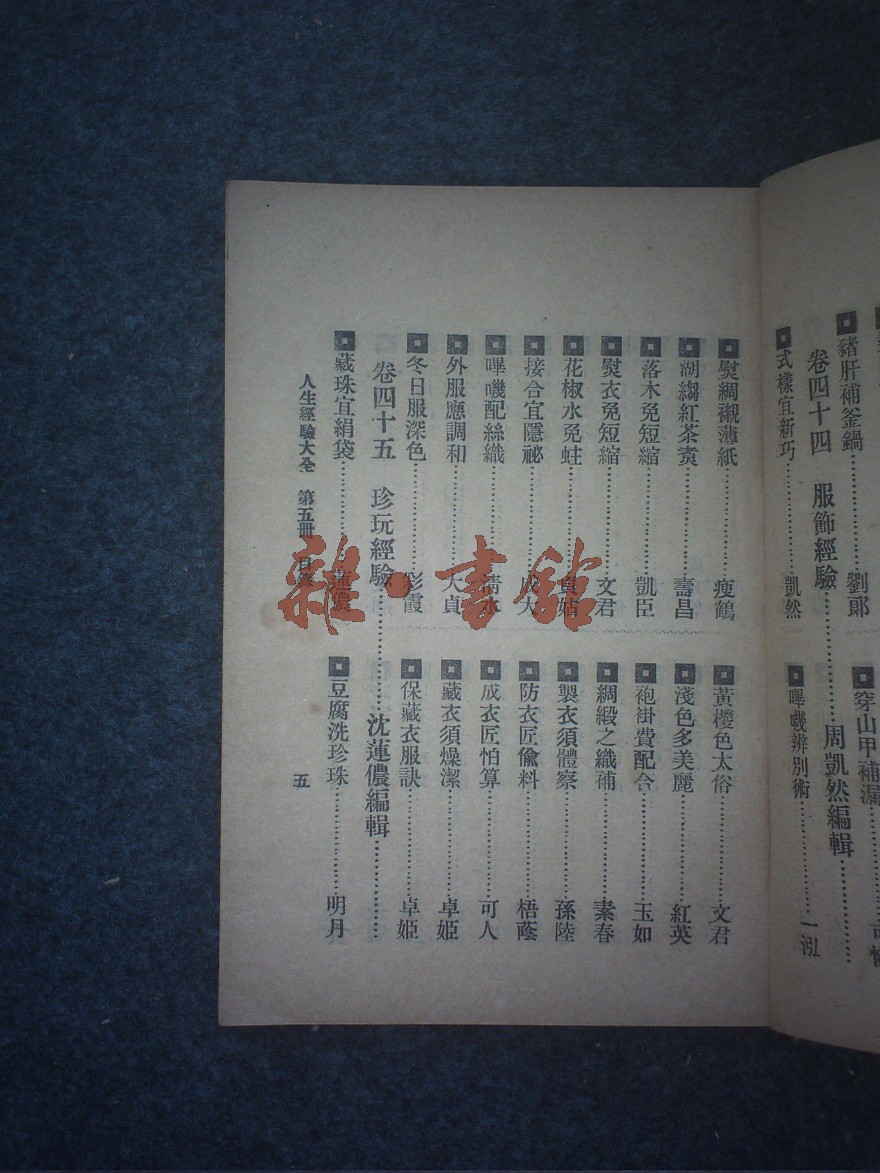 豬肝補釜鍋……劉郎
穿山甲補漏
卷四十四 服飾經驗……周凱然編輯……
式樣宜新巧……凱然
嗶嘰辨別術……一泓
熨綢襯薄紙……瘦鶴
黃櫻色太俗……文君
湖縐紅茶煑……壽昌
淺色多美麗……紅英
落木免短縮……凱臣
袍褂費配合……玉如
熨衣免短縮……文君
綢緞之織補……素春
花椒水免蛀
製衣須體察……孫陸
接合宜隱祕……成大
防衣匠偸料……梧蔭
嗶嘰配絲織……清水
成衣匠怕算……可人
外服應調和……大貞
藏衣須燥潔……卓姬
冬日服深色……彩霞
保藏衣服訣……卓姬
卷四十五 珍玩經驗……沈蓮儂編輯……
藏珠宜絹袋……蓮儂
豆腐洗珍珠……明月
人生經驗大全 第五冊 目錄 五
雜·書館